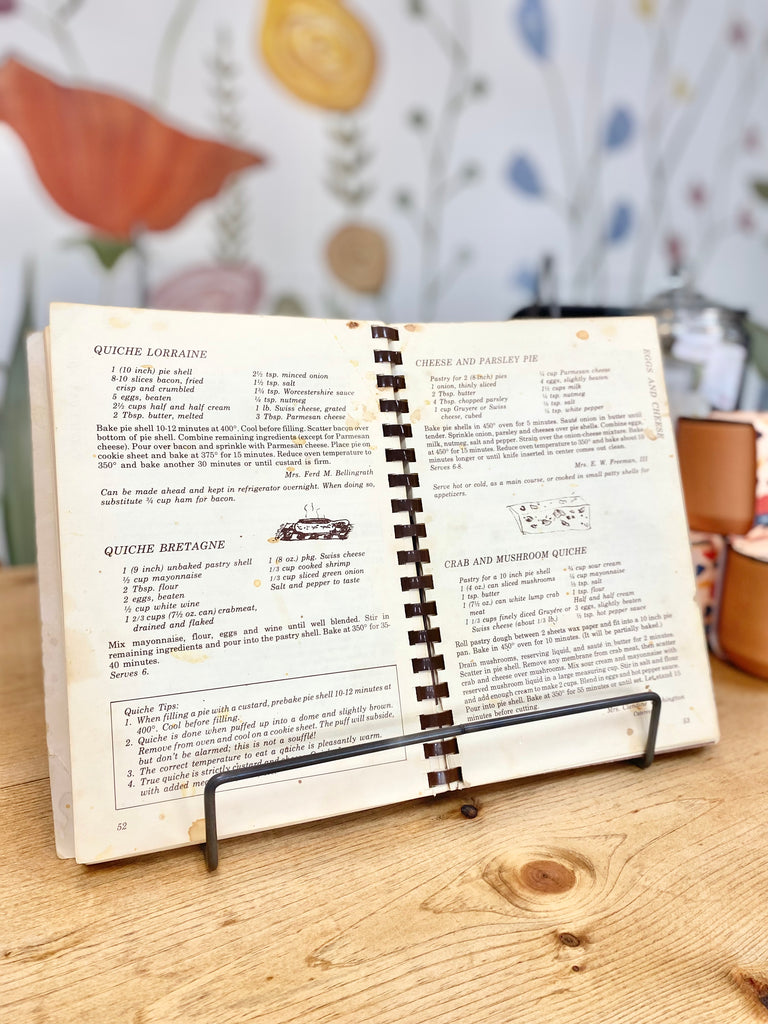 QUICHE LORRAINE
1 (10 inch) pie shell
8-10 slices bacon, fried
crisp and crumbled
5 eggs, beaten
2⅔ cups half and half cream
2 Tbsp. butter, melted
2½ tsp. minced onion
1½ tsp. salt
1¾ tsp. Worcestershire sauce
¼ tsp. nutmeg
1 lb. Swiss cheese, grated
3 Tbsp. Parmesan cheese
Bake pie shell 10-12 minutes at 400°. Cool before filling. Scatter bacon over
bottom of pie shell. Combine remaining ingredients (except for Parmesan
cheese). Pour over bacon and sprinkle with Parmesan cheese. Place pie on
cookie sheet and bake at 375° for 15 minutes. Reduce oven temperature to
350° and bake another 30 minutes or until custard is firm.
Mrs. Ferd M. Bellingrath
Can be made ahead and kept in refrigerator overnight. When doing so,
substitute ¾ cup ham for bacon.
QUICHE BRETAGNE
1 (9 inch) unbaked pastry shell
½ cup mayonnaise
2 Tbsp. flour
2 eggs, beaten
½ cup white wine
1 2/3 cups (7½ oz. can) crabmeat,
drained and flaked
1 (8 oz.) pkg. Swiss cheese
1/3 cup cooked shrimp
1/3 cup sliced green onion
Salt and pepper to taste
Mix mayonnaise, flour, eggs and wine until well blended. Stir in
remaining ingredients and pour into the pastry shell. Bake at 350° for 35-
40 minutes.
Serves 6.
Quiche Tips:
1. When filling a pie with a custard, prebake pie shell 10-12 minutes at
400°. Cool before filling.
2. Quiche is done when puffed up into a dome and slightly brown.
Remove from oven and cool on a cookie sheet. The puff will subside,
but don't be alarmed; this is not a soufflé!
3. The correct temperature to eat a quiche is pleasantly warm.
4. True quiche is strictly custard and
with added
52
CHEESE AND PARSLEY PIE
Pastry for 2 (8 inch) pies
1 onion, thinly sliced
2 Tbsp. butter
4 Tbsp. chopped parsley
1 cup Gruyere or Swiss
cheese, cubed
¼ cup Parmesan cheese
4 eggs, slightly beaten
1½ cups milk
¼ tsp. nutmeg
½ tsp. salt
¼ tsp. white pepper
Bake pie shells in 450° oven for 5 minutes. Sauté onion in butter until
tender. Sprinkle onion, parsley and cheeses over pie shells. Combine eggs,
milk, nutmeg, salt and pepper. Strain over the onion-cheese mixture. Bake
at 450° for 15 minutes. Reduce oven temperature to 350° and bake about 10
minutes longer or until knife inserted in center comes out clean.
Serves 6-8.
Mrs. E. W. Freeman, III
Serve hot or cold, as a main course, or cooked in small patty shells for
appetizers.
CRAB AND MUSHROOM QUICHE
Pastry for a 10 inch pie shell
1 (4 oz.) can sliced mushrooms
1 tsp. butter
1 (7½ oz.) can white lump crab
meat
1 1/3 cups finely diced Gruyère or
Swiss cheese (about 1/3 lb.)
¾ cup sour cream
¼ cup mayonnaise
½ tsp. salt
1 tsp. flour
Half and half cream
3 eggs, slightly beaten
½ tsp. hot pepper sauce
Roll pastry dough between 2 sheets wax paper and fit into a 10 inch pie
pan. Bake in 450° oven for 10 minutes. (It will be partially baked.)
Drain mushrooms, reserving liquid, and sauté in butter for 2 minutes.
Scatter in pie shell. Remove any membrane from crab meat, then scatter
crab and cheese over mushrooms. Mix sour cream and mayonnaise with
reserved mushroom liquid in a large measuring cup. Stir in salt and flour
and add enough cream to make 2 cups. Blend in eggs and hot pepper sauce.
Pour into pie shell. Bake at 350° for 55 minutes or until set. Let stand 15
minutes before cutting.
Mrs.
53
EGGS AND CHEESE